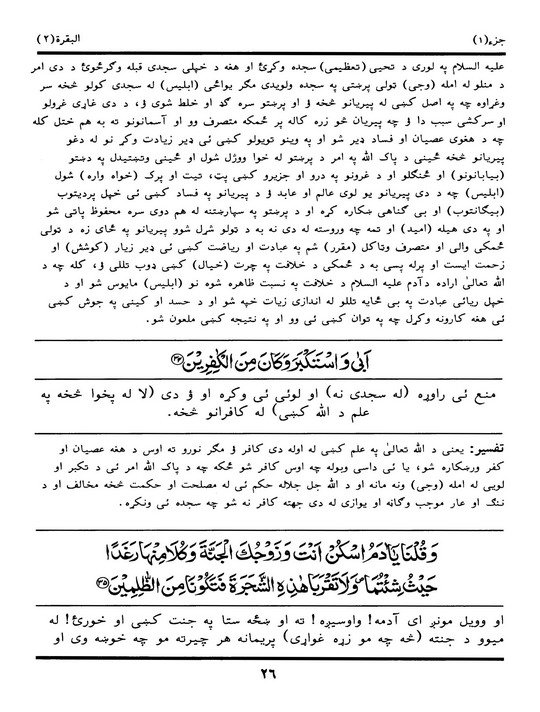 جزء(١) البقرة(٢)
عليه السلام په لوری د تحیی (تعظیمی) سجده وکړئ او هغه د خپلی سجدی قبله وګرځوئ د دی امر
د منلو له امله (وجی) ټولی پرښتی په سجده ولویدی مګر یواځی (ابلیس) له سجدی کولو څخه سر
وغړاوه چه په اصل کښی له پیریانو څخه ؤ او پرښتو سره ګډ او خلط شوی ؤ، د دی غاړی غړولو
او سرکشی سبب دا ؤ چه پیریان څو زره کاله پر ځمکه متصرف وو او آسمانونو ته به هم ختل کله
چه د هغوی عصیان او فساد ډیر شو او په وینو تویولو کښی ئی ډیر زیادت وکړ نو له دغو
پیریانو څخه ځینی د پاک الله په امر د پرښتو له خوا ووژل شول او ځینی وتښتیدل په دښتو
(بیابانونو) او ځنګلو او د غرونو په درو او جزیرو کښی پټ، تیت او پرک (خواه واره) شول
(ابلیس) چه د دی پیریانو یو لوی عالم او عابد ؤ د پیریانو په فساد کښی ئی خپل پردیتوب
(بیګانتوب) او بی ګناهی ښکاره کړه او د پرښتو په سپارښتنه له هم دوی سره محفوظ پاتی شو
او په دی هیله (امید) او تمه چه وروسته له دی نه به د ټولو شړل شوو پیریانو په ځای زه د ټولی
ځمکی والی او متصرف وټاکل (مقرر) شم په عبادت او ریاضت کښی ئی ډیر زیار (کوشش) او
زحمت ایست او پرله پسی به د ځمکی د خلافت په چرت (خیال) کښی ډوب تللی ؤ، کله چه د
الله تعالیٰ اراده د آدم علیه السلام د خلافت په نسبت ظاهره شوه نو (ابلیس) مایوس شو او د
خپل ریائی عبادت په بی ځایه تللو له اندازی زیات خپه شو او د حسد او کینی په جوش کښی
ئی هغه کارونه وکړل چه په توان کښی ئی وو او په نتیجه کښی ملعون شو.
اَبٰى وَاسْتَكْبَرَ وَكَانَ مِنَ الْكٰفِرِيْنَ ﴿٣٤﴾
منع ئی راوړه (له سجدی نه) او لوئی ئی وکړه او ؤ دی (لا له پخوا څخه په
علم د الله کښی) له کافرانو څخه.
تفسیر: یعنی د الله تعالیٰ په علم کښی له اوله دی کافر ؤ مګر نورو ته اوس د هغه عصیان او
کفر ورښکاره شو، یا ئی داسی وبوله چه اوس کافر شو ځکه چه د پاک الله امر ئی د تکبر او
لویی له امله (وجی) ونه مانه او د الله جل جلاله حکم ئی له مصلحت او حکمت څخه مخالف او د
ننګ او عار موجب وګاڼه او یوازی له دی جهته کافر نه شو چه سجده ئی ونکړه.
وَقُلْنَا يٰۤاٰدَمُ اسْكُنْ اَنْتَ وَزَوْجُكَ الْجَنَّةَ وَكُلَا مِنْهَا رَغَدًا
حَيْثُ شِئْتُمَا ۪ وَلَا تَقْرَبَا هٰذِهِ الشَّجَرَةَ فَتَكُوْنَا مِنَ الظّٰلِمِيْنَ ﴿٣٥﴾
او وویل مونږ ای آدمه! واوسیږه! ته او ښځه ستا په جنت کښی او خورئ! له
میوو د جنته (څه چه مو زړه غواړی) پریمانه هر چیرته مو چه خوښه وی او
٢٦